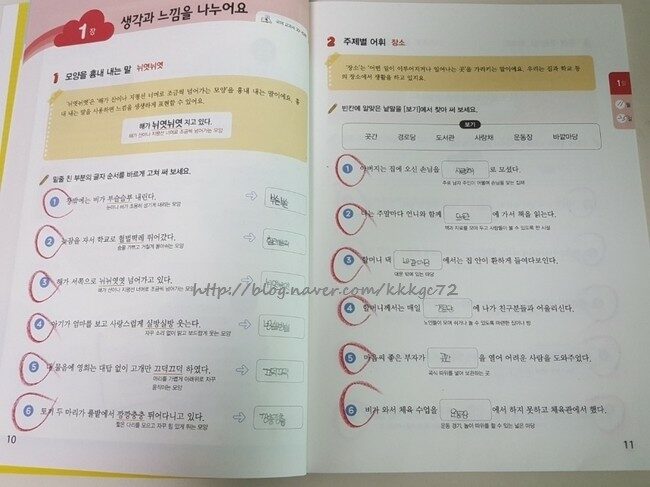 1장
생각과 느낌을 나누어요
1 모양을 흉내 내는 말 뉘엿뉘엿
'뉘엿뉘엿'은 '해가 산이나 지평선 너머로 조금씩 넘어가는 모양'을 흉내 내는 말이에요. 흉
내 내는 말을 사용하면 느낌을 생생하게 표현할 수 있어요.
해가 뉘엿뉘엿 지고 있다.
해가 산이나 지평선 너머로 조금씩 넘어가는 모양
밑줄 친 부분의 글자 순서를 바르게 고쳐 써 보세요.
1 창밖에는 비가 부슬슬부 내린다.
눈이나 비가 조용히 성기게 내리는 모양
2 늦잠을 자서 학교로 헐벌떡레 뛰어갔다.
숨을 가쁘고 거칠게 몰아쉬는 모양
3 해가 서쪽으로 뉘뉘엿엿 넘어가고 있다.
해가 산이나 지평선 너머로 조금씩 넘어가는 모양
4 아기가 엄마를 보고 사랑스럽게 실방실방 웃는다.
자꾸 소리 없이 밝고 보드랍게 웃는 모양
5 내 물음에 영희는 대답 없이 고개만 끄덕끄덕 하였다.
머리를 가볍게 아래위로 자꾸
움직이는 모양
6 토끼 두 마리가 풀밭에서 깡깡충충 뛰어다니고 있다.
짧은 다리를 모으고 자꾸 힘 있게 뛰는 모양
깡충깡충
10
2 주제별 어휘 장소
'장소'는 '어떤 일이 이루어지거나 일어나는 곳'을 가리키는 말이에요. 우리는 집과 학교 등
의 장소에서 생활을 하고 있지요.
빈칸에 알맞은 낱말을 [보기]에서 찾아 써 보세요.
보기
곳간 경로당 도서관 사랑채 운동장 바깥마당
1 아버지는 집에 오신 손님을 사랑채로 모셨다.
주로 남자 주인이 머물며 손님을 맞는 집채
2 나는 주말마다 언니와 함께 에 가서 책을 읽는다.
책과 자료를 모아 두고 사람들이 볼 수 있도록 한 시설
3 할머니 댁 에서는 집 안이 환하게 들여다보인다.
대문 밖에 있는 마당
4 할머니께서는 매일 에 나가 친구분들과 어울리신다.
노인들이 모여 쉬거나 놀 수 있도록 마련한 집이나 방
5 마음씨 좋은 부자가 곳간을 열어 어려운 사람을 도와주었다.
곡식 따위를 넣어 보관하는 곳
6 비가 와서 체육 수업을 운동장에서 하지 못하고 체육관에서 했다.
운동 경기, 놀이 따위를 할 수 있는 넓은 마당
11
1장
http://blog.naver.com/kkkgc72